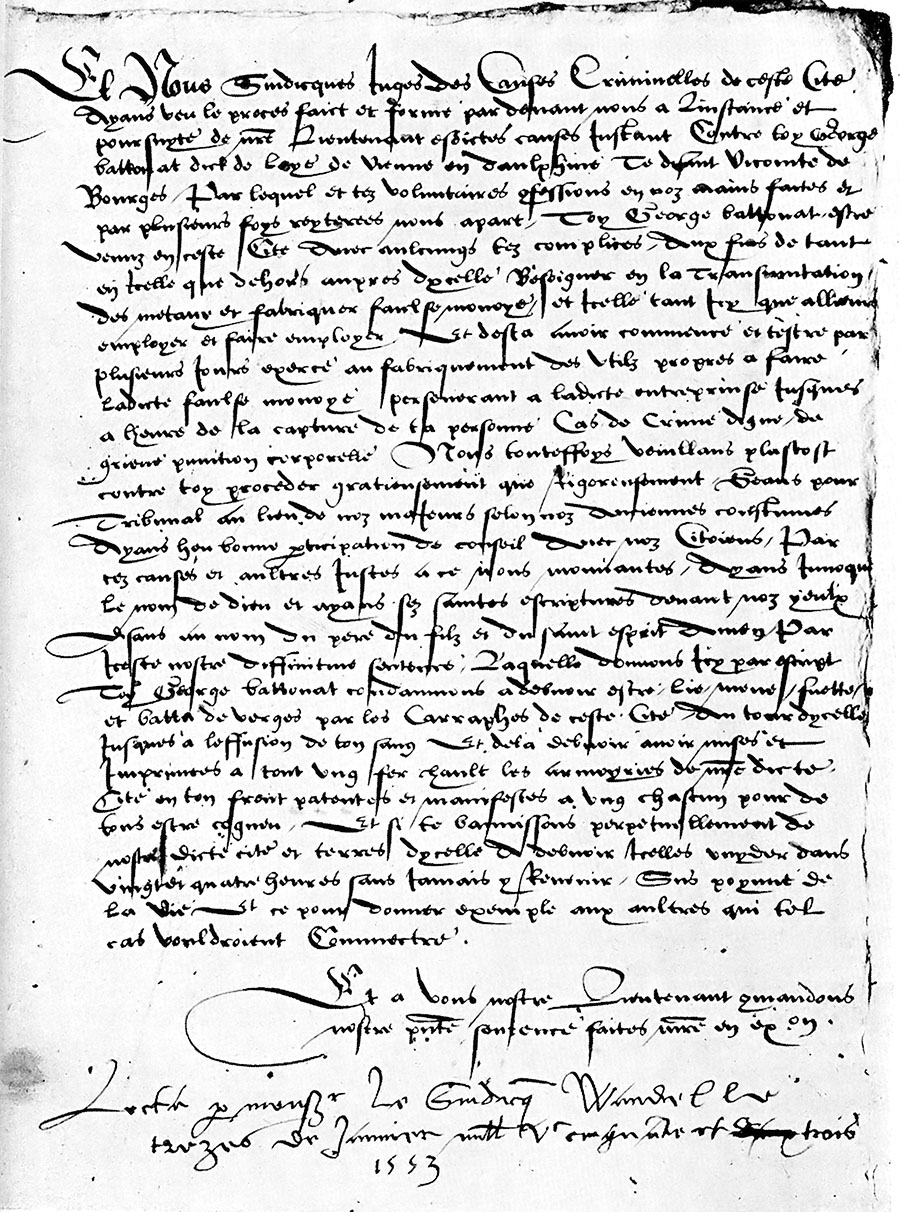 Et Nous Sindicques Juges des Causes Criminelles de ceste Cite
Ayans veu le proces faict et forme par devant nous a linstance et
poursuyte de nre Lieutenant esdictes causes Instant Contre toy George
battonat dict de Loye de vienne en daulphine Te disant Vicomte de
Bourges, Par lequel et tez voluntaires cfessions en noz mains faites et
par plusieurs foys reyterees nous apart, Toy George battonat estre
venuz en ceste Cite Avec aulcungs tez complices, Aux fins de tant
en Icelle que dehors aupres dycelle Besoigner en la Transmutation
des metaux et fabriquer faulse monoye, et Icelle tant Icy que allieurs
employer et faire employer, Et desja avoir commence et testre par
plusieurs Jours exerce au fabriquement des Utilz propres a faire
ladicte faulse monoye perseverant a ladicte entreprinse Jusques
a lheure de la capture de ta personne Cas de Crime digne de
griene punition corporelle Nous touteffoys veuillans plustost
contre toy proceder gratieusement que Rigoreusement, Seans pour
Tribunal au lieu de noz majeurs selon noz Anciennes coustumes
Ayans heu bonne pticipation de conseil Avec noz Citoiens, Par
cez causes et aultres Justes a ce nous mouvantes, Ayans Invoque
le nom de dieu et ayans sez saintes escriptures devant noz yeulx
disans au nom du pere du filz et du saint esprit Amen Par
Iceste nostre diffinitive sentence, Laquelle donnons Icy par escript
Toy George battonat condamnons a debvoir estre, lie, mene, fuette,
et batta de verges par los Carraphes de ceste Cite Au tour dycelle
Jusques a leffusion de ton sang Et dela debvoir avoir mises et
Imprimees a tout ung fer chault les armoyries de nre dicte
Cite en ton front patentes et manifestes a ung chascun pour de
tous estre cogneu, Et si te bannissons perpetuellement de
nostre dicte cite et terres dycelle A debvoir Icelles vuyder dans
vingtet quatre heures sans Jamais y Revenir, Sus poynne de
la vie, Et ce pour donner exemple aux aultres qui tel
cas vouldroient Commectre.
Et a vous nostre Lieutenant cmandons
nostre pnte sentence faites mre en exon.
Lecta p monsr Le Sindicq Wandel le
trezes de Janvier mill Vc cinquante et trois
1553